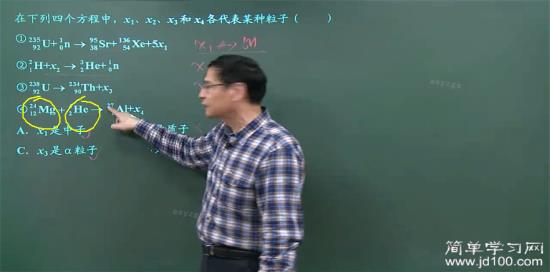 在下列四个方程中，x₁、x₂、x₃和x₄各代表某种粒子（　　）
① ²³⁵₉₂U+¹₀n → ⁹⁵₃₈Sr+¹³⁶₅₄Xe+5x₁
② ²₁H+x₂ → ³₂He+¹₀n
③ ²³⁸₉₂U → ²³⁴₉₀Th+x₃
④ ²⁴₁₂Mg + He → Al+x₄
A．x₁是中子 质子
C．x₃是α粒子
x₁
简单学习网
www.jd100.com